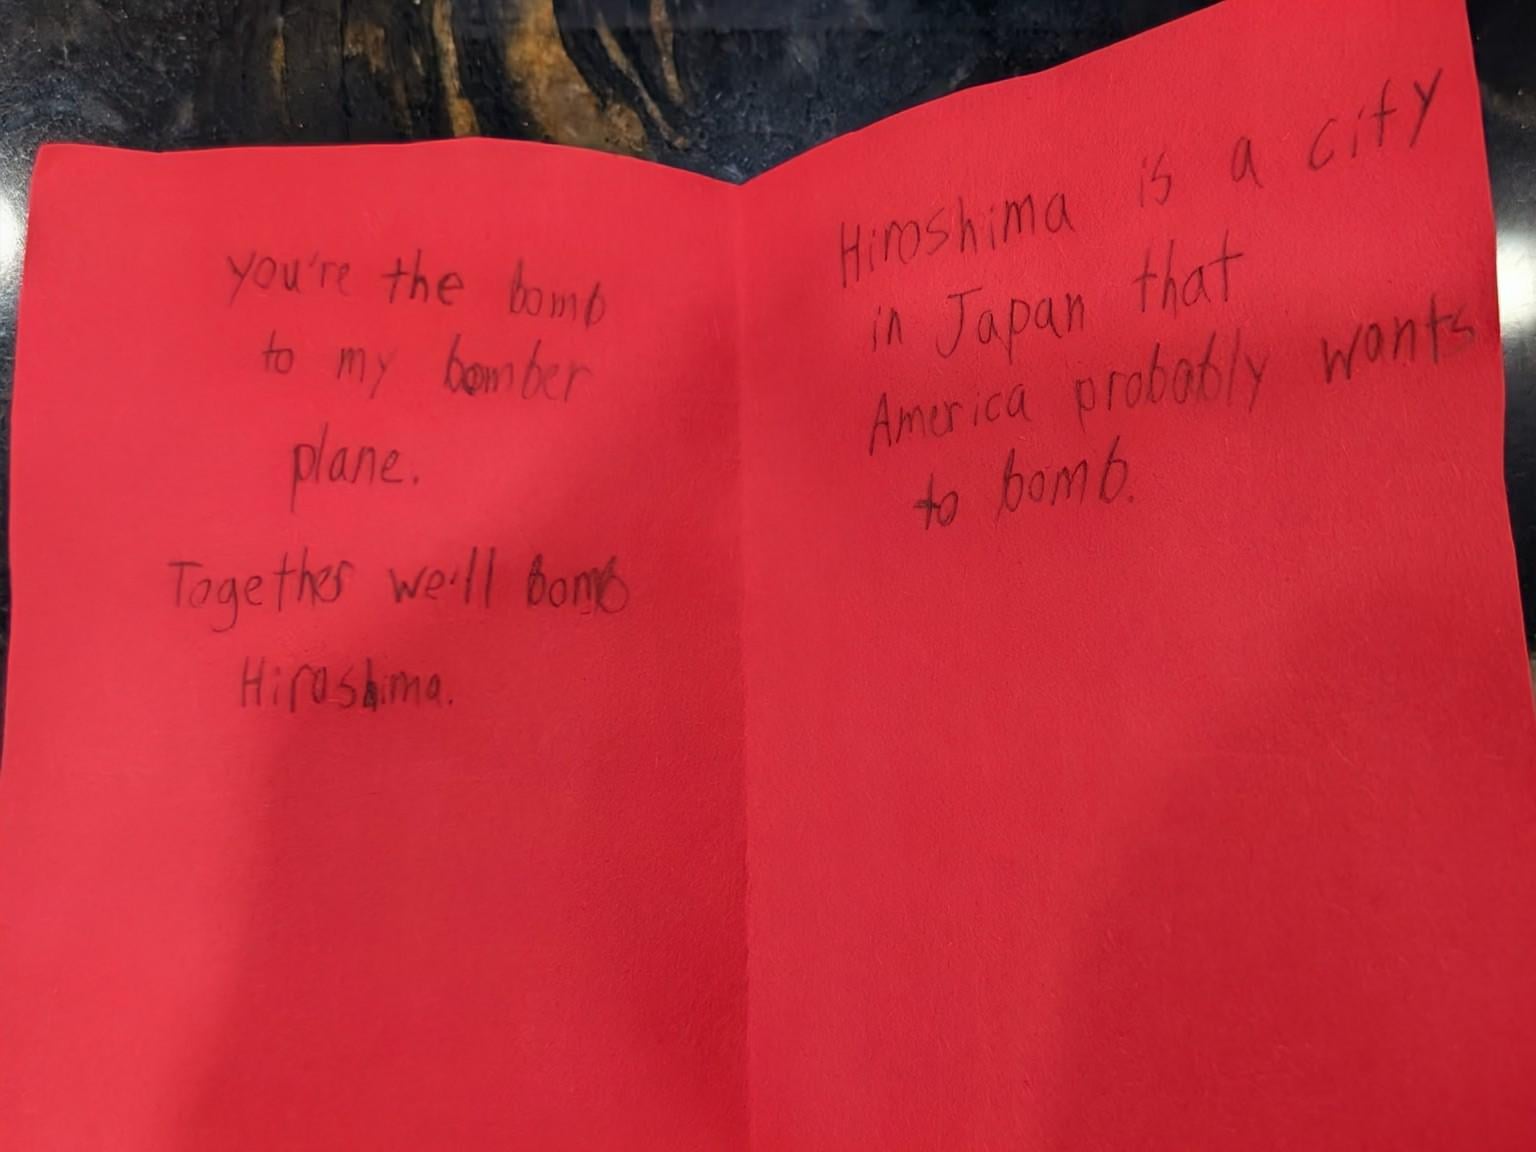 you're the bomb
to my bomber
plane.
Together we'll bomb
Hiroshima.
Hiroshima is a city
in Japan that
America probably wants
to bomb.